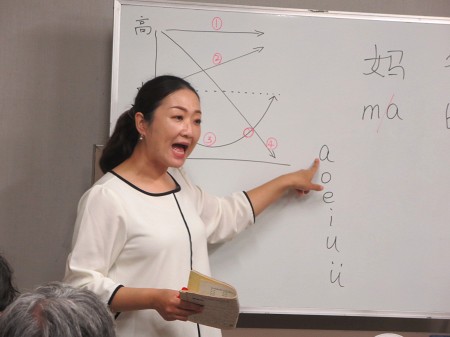 高
①
②
③
④
妈
mā
a
o
e
i
u
ü